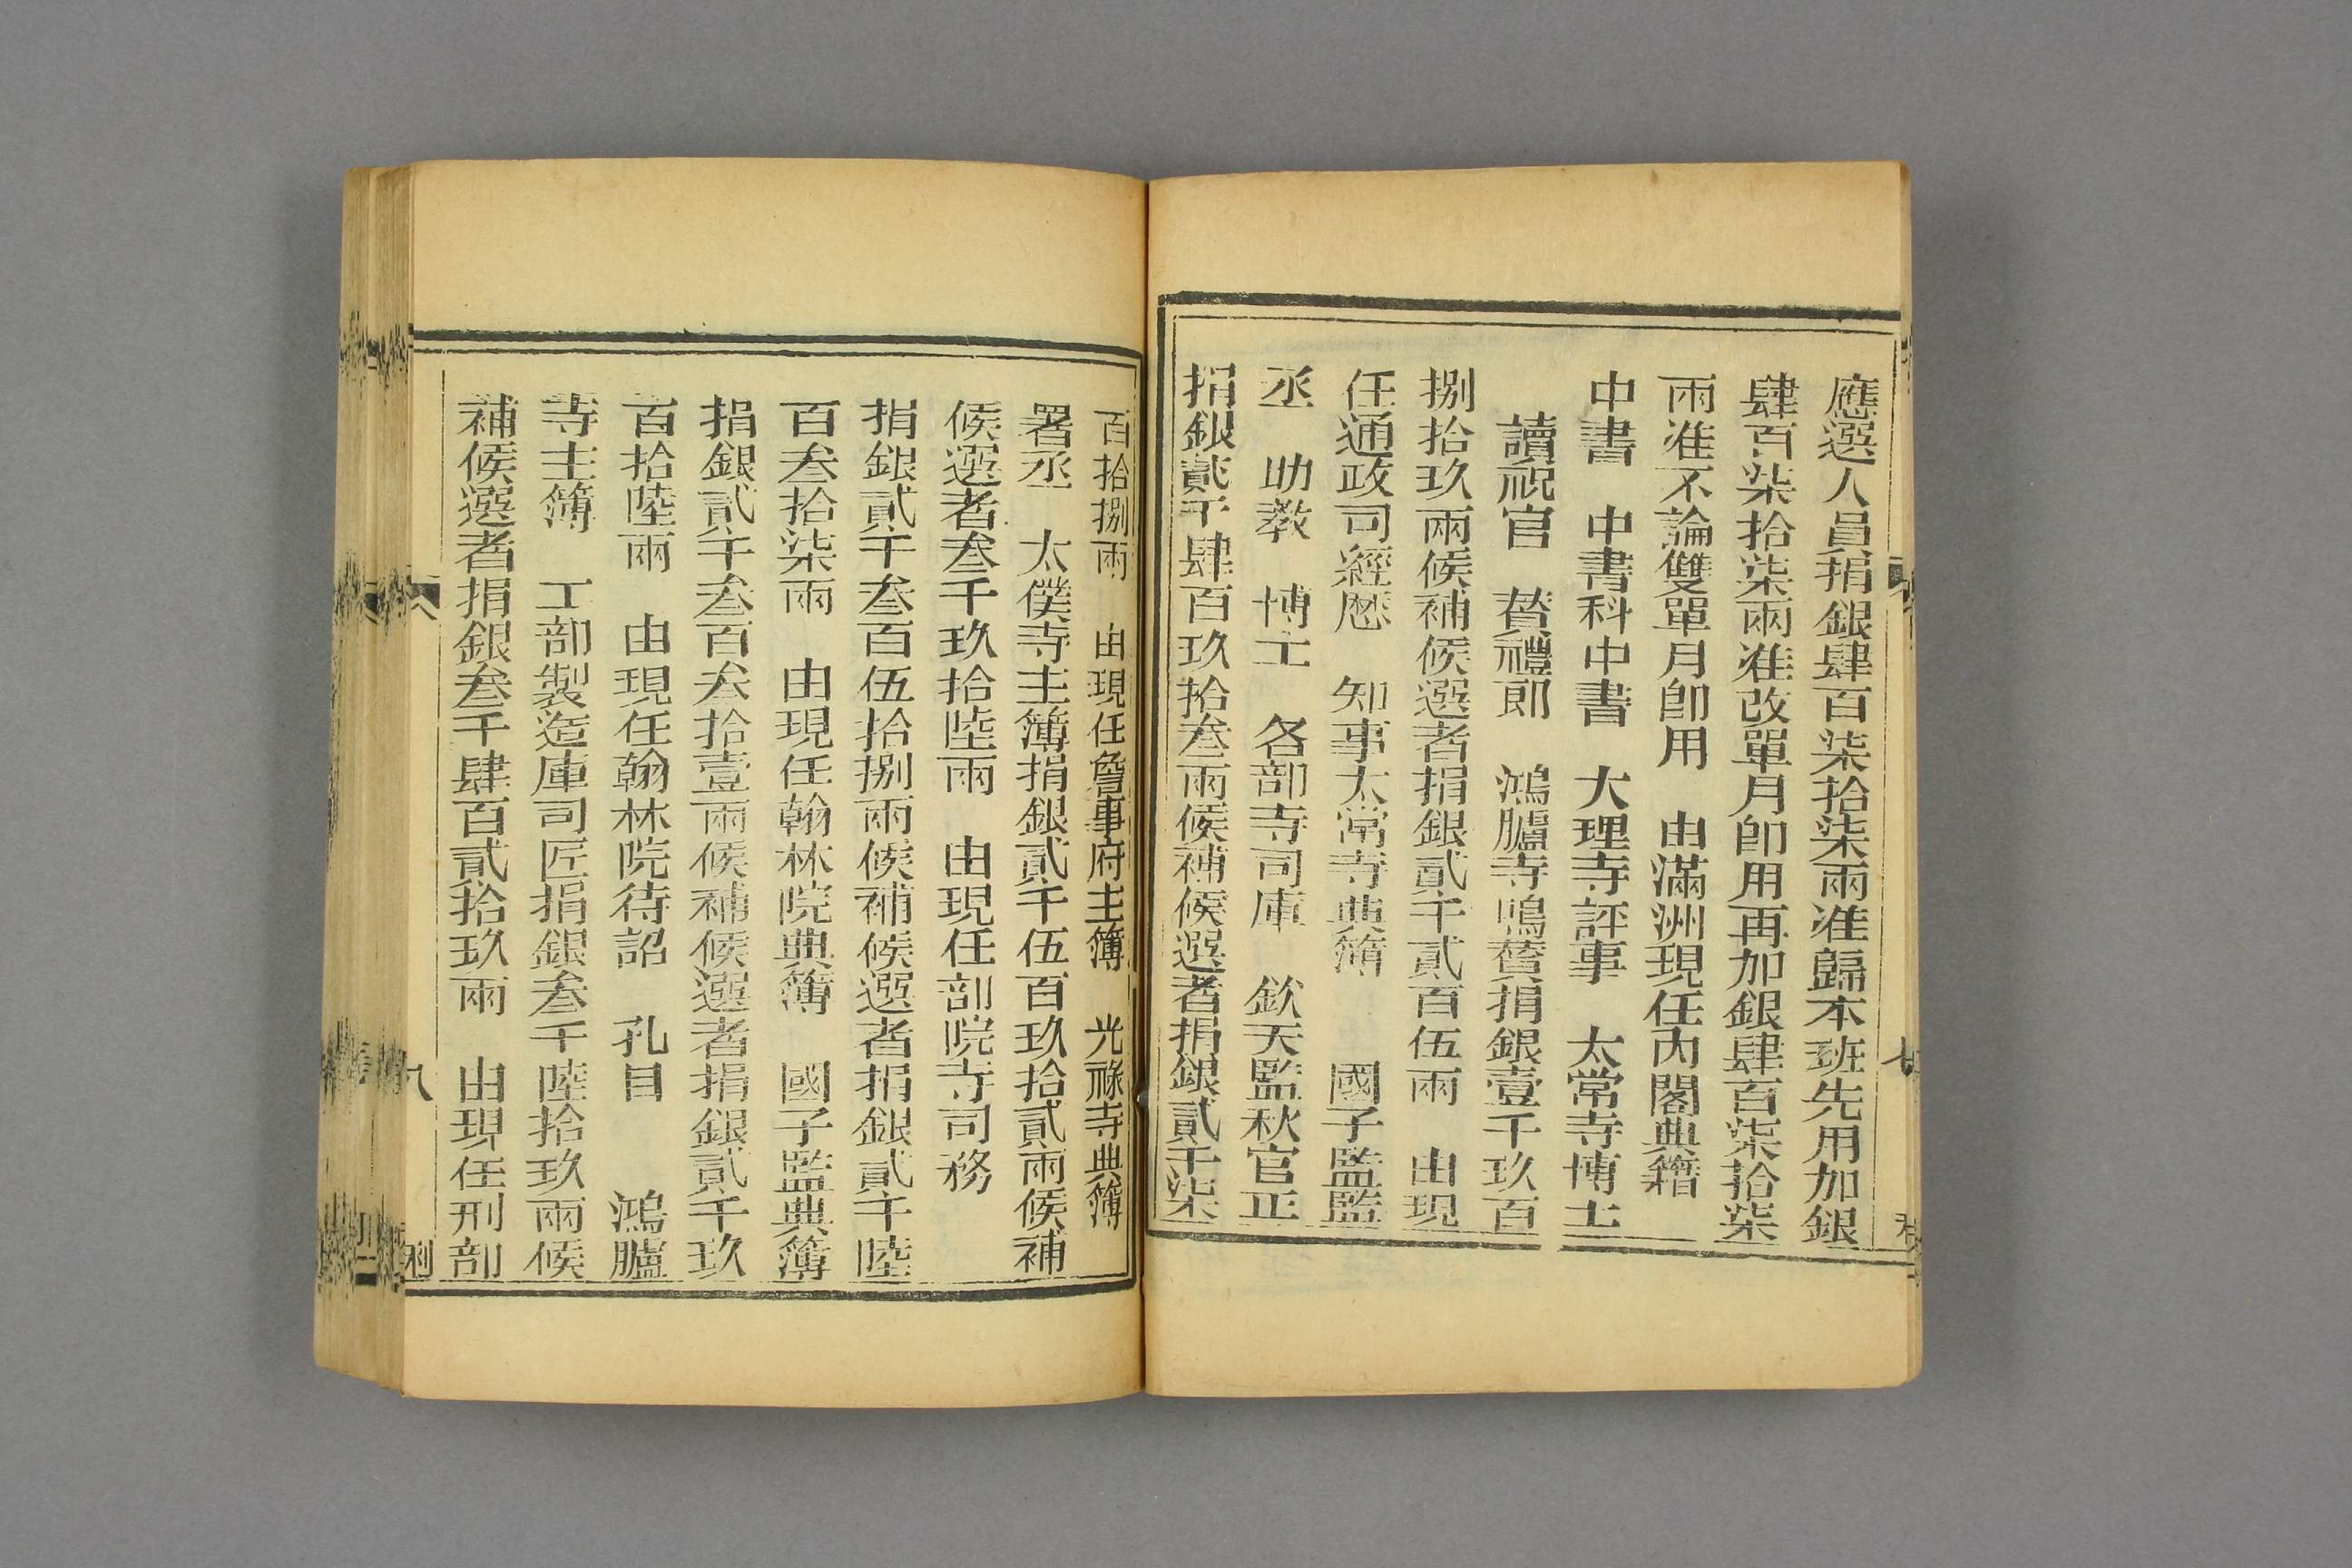 應選人員捐銀肆百柒拾柒兩准歸本班先用加銀
肆百柒拾柒兩准改單月卽用再加銀肆百柒拾柒
兩准不論雙單月卽用　由滿洲現任內閣典籍
中書　中書科中書　大理寺評事　太常寺博士
讀祝官　贊禮郎　鴻臚寺鳴贊捐銀壹千玖百
捌拾玖兩候補候選者捐銀貳千貳百伍兩　由現
任通政司經歷　知事太常寺典簿　國子監監
丞　助教　博士　各部寺司庫　欽天監秋官正
捐銀貳千肆百玖拾叁兩候補候選者捐銀貳千柒
百拾捌兩　由現任詹事府主簿　光祿寺典簿
署丞　太僕寺主簿捐銀貳千伍百玖拾貳兩候補
候選者叁千玖拾陸兩　由現任部院寺司務
捐銀貳千叁百伍拾捌兩候補候選者捐銀貳千陸
百叁拾柒兩　由現任翰林院典簿　國子監典簿
捐銀貳千叁百叁拾壹兩候補候選者捐銀貳千玖
百拾陸兩　由現任翰林院待詔　孔目　鴻臚
寺主簿　工部製造庫司匠捐銀叁千陸拾玖兩候
補候選者捐銀叁千肆百貳拾玖兩　由現任刑部
八